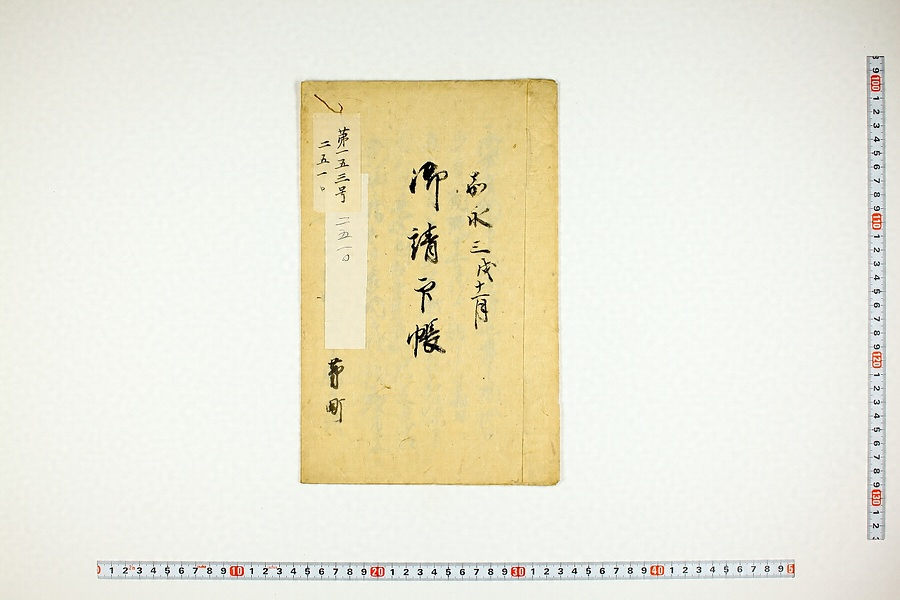 嘉永三戌十一月
御請印帳
第一五三号
二五一〇
二五一〇
茅町